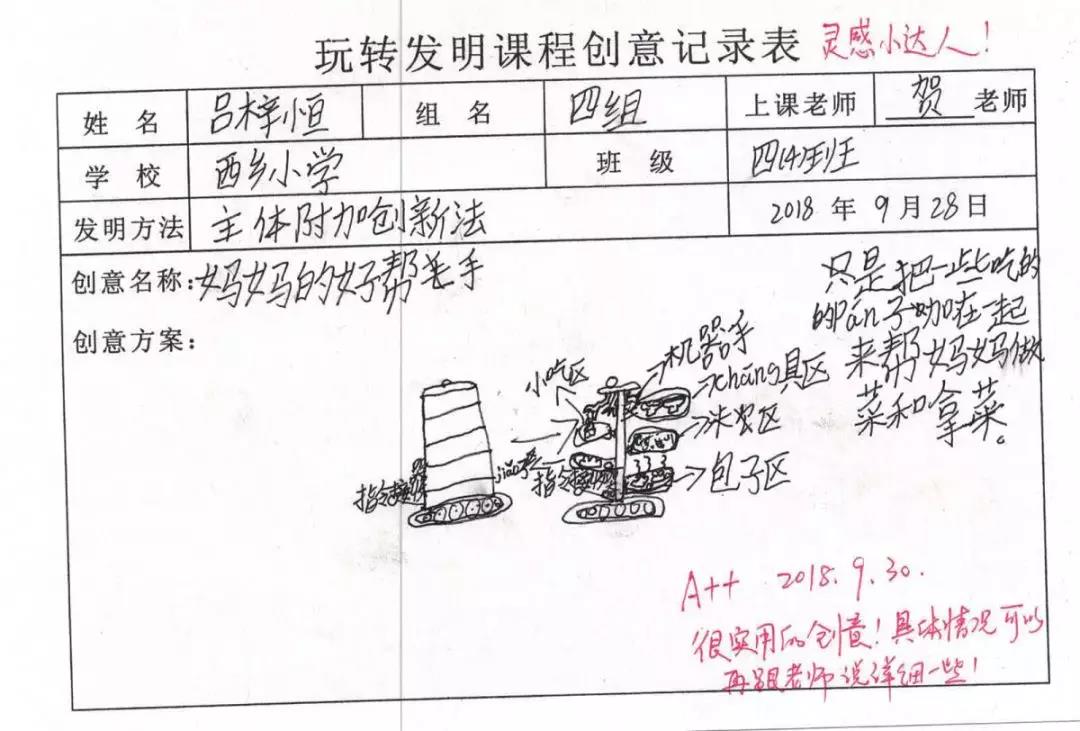 玩转发明课程创意记录表 灵感小达人!
姓 名 吕梓恒 组 名 四组 上课老师 贺 老师
学 校 西乡小学 班 级 四(4)班
发明方法 主体附加创新法 2018 年 9 月 28 日
创意名称:妈妈的好帮手
创意方案:
只是把一些吃的
的Pán子加在一起
来帮妈妈做
菜和拿菜。
机器手
小吃区
chāng具区
包子区
A++ 2018.9.30.
很实用的创意!具体情况可以
再跟老师说详细一些!